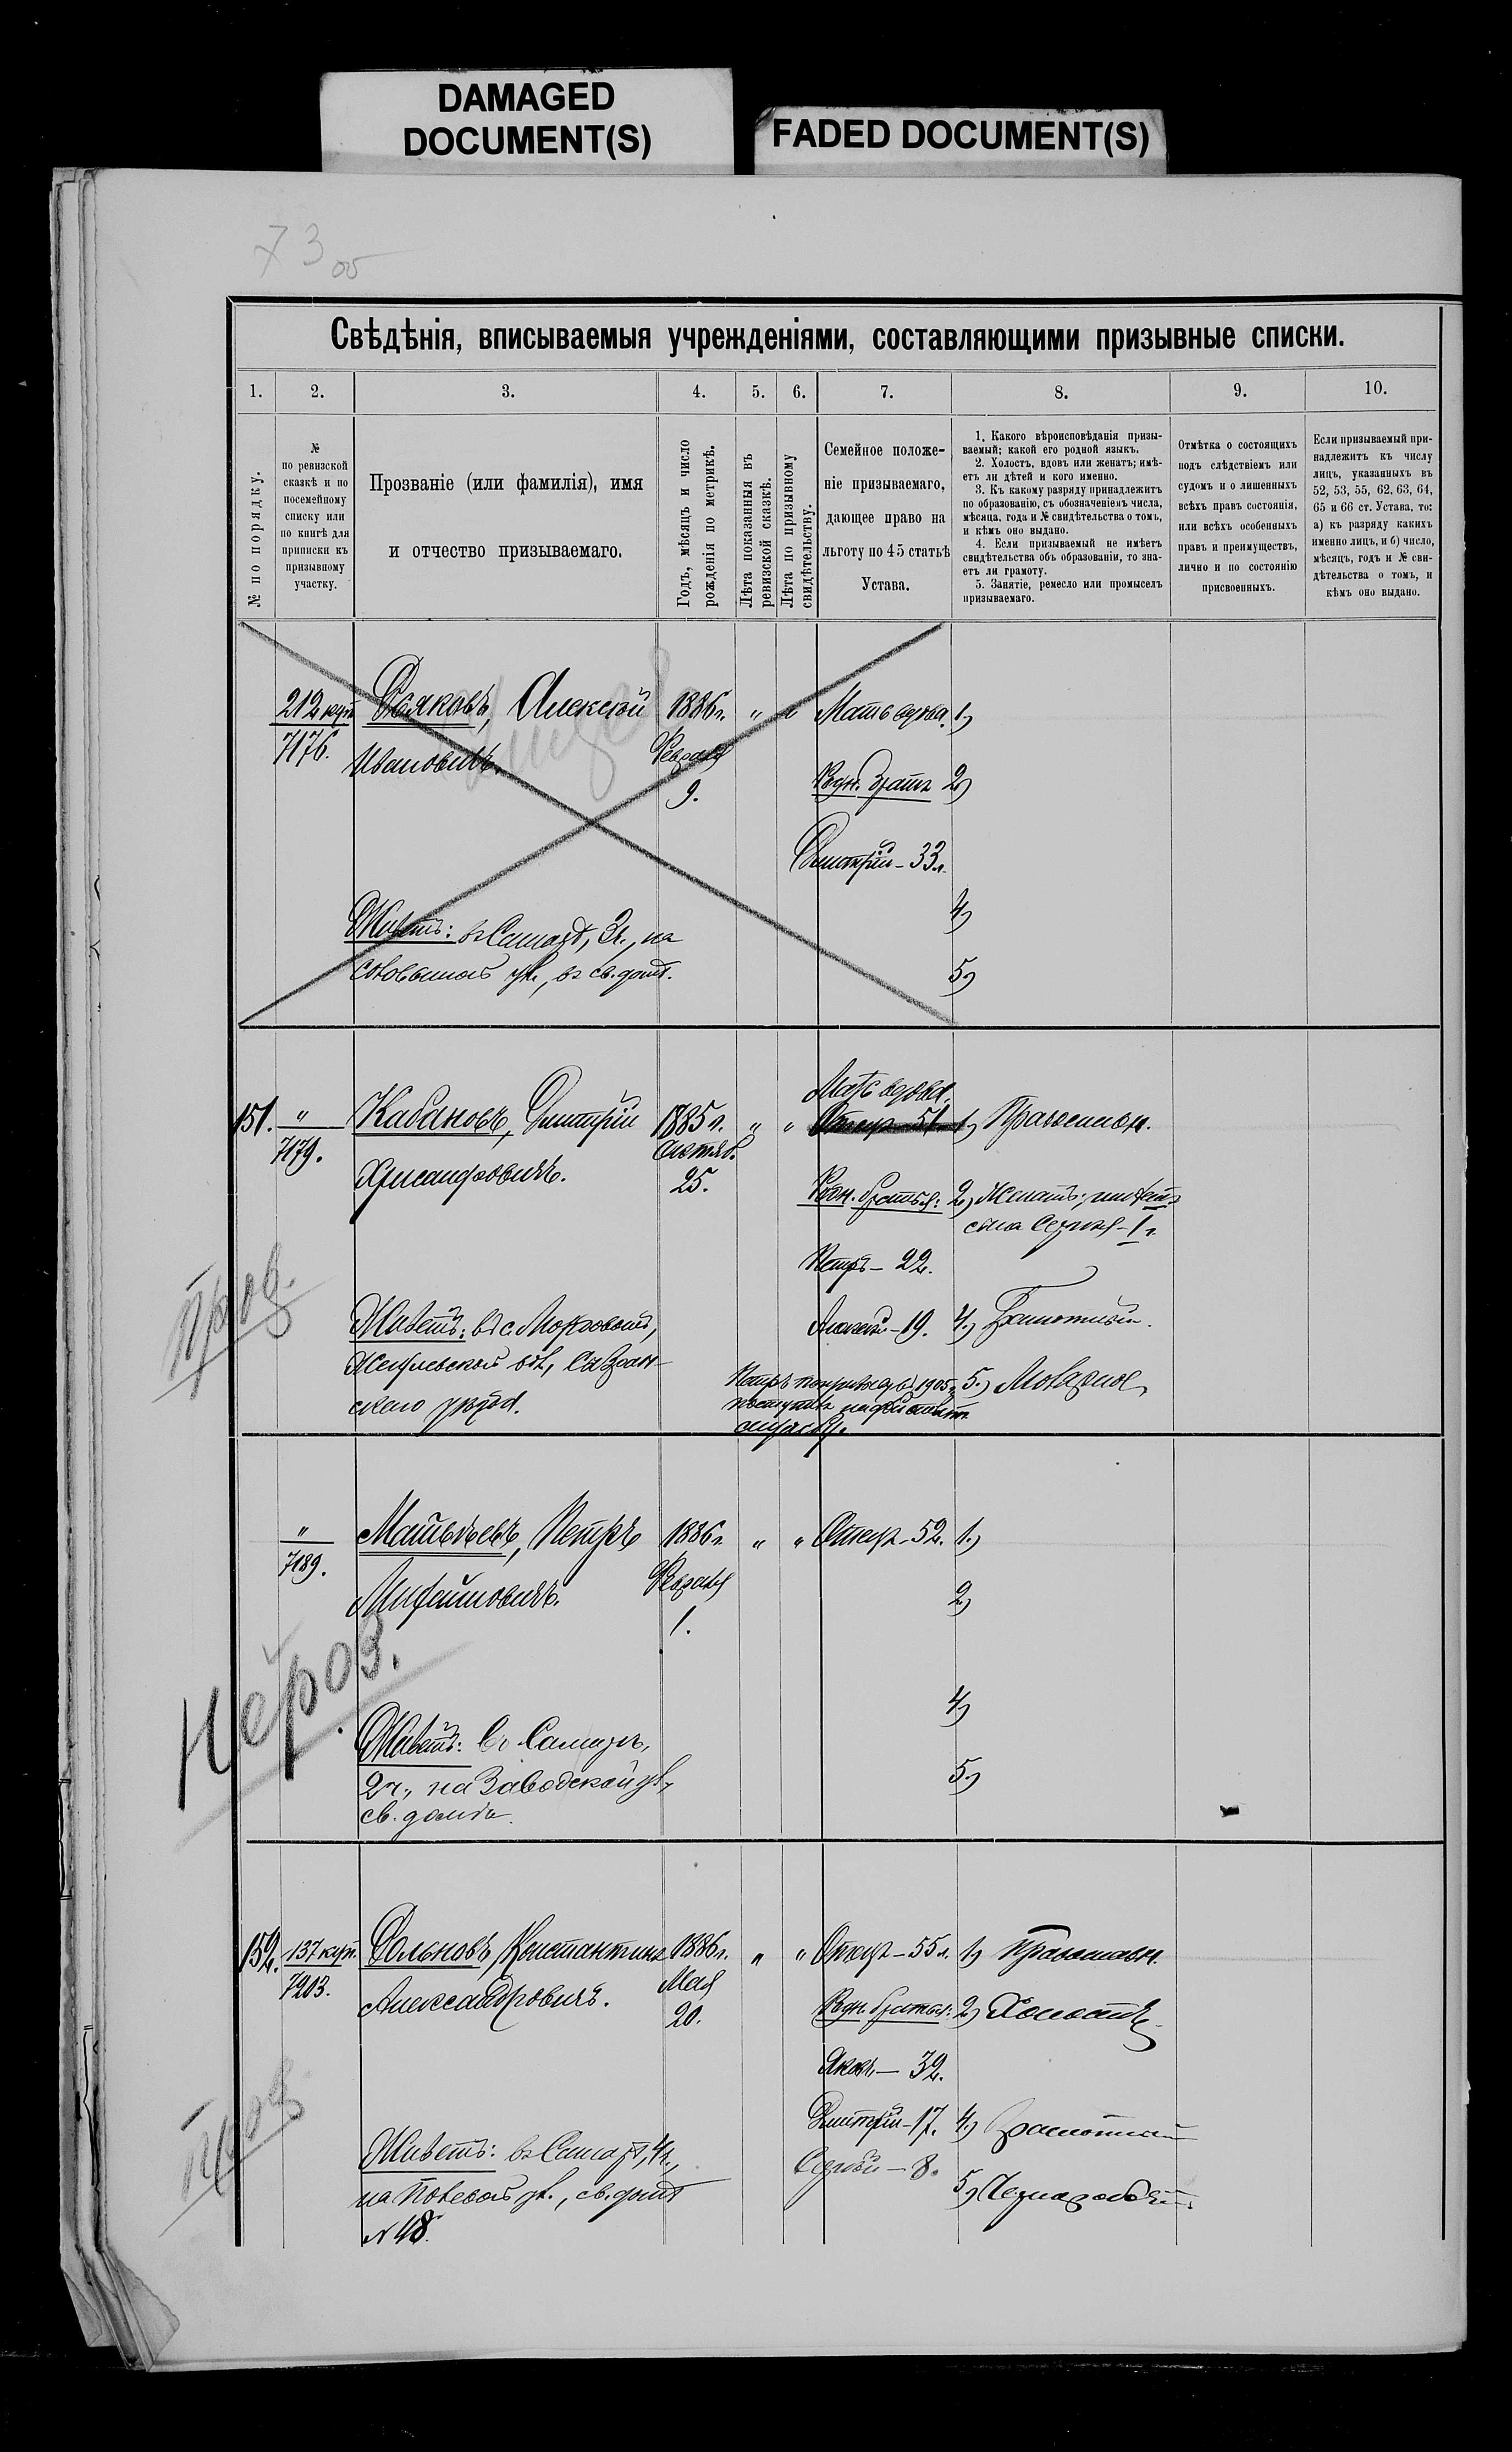 DAMAGED
DOCUMENT(S)
FADED DOCUMENT(S)
73 об
Свѣдѣнія, вписываемыя учрежденіями, составляющими призывные списки.
1. 2. 3. 4. 5. 6. 7. 8. 9. 10.
№ по порядку.
№
по ревизской
сказкѣ и по
посемейному
списку или
по книгѣ для
приписки къ
призывному
участку.
Прозваніе (или фамилія), имя
и отчество призываемаго.
Годъ, мѣсяцъ и число
рожденія по метрикѣ.
Лѣта показанныя въ
ревизской сказкѣ.
Лѣта по призывному
свидѣтельству.
Семейное положе-
ніе призываемаго,
дающее право на
льготу по 45 статьѣ
Устава.
1. Какого вѣроисповѣданія призы-
ваемый; какой его родной языкъ.
2. Холостъ, вдовъ или женатъ; имѣ-
етъ ли дѣтей и кого именно.
3. Къ какому разряду принадлежитъ
по образованію, съ обозначеніемъ числа,
мѣсяца, года и № свидѣтельства о томъ,
и кѣмъ оно выдано.
4. Если призываемый не имѣетъ
свидѣтельства объ образованіи, то зна-
етъ ли грамоту.
5. Занятіе, ремесло или промыселъ
призываемаго.
Отмѣтка о состоящихъ
подъ слѣдствіемъ или
судомъ и о лишенныхъ
всѣхъ правъ состоянія,
или всѣхъ особенныхъ
правъ и преимуществъ,
лично и по состоянію
присвоенныхъ.
Если призываемый при-
надлежитъ къ числу
лицъ, указанныхъ въ
52, 53, 55, 62, 63, 64,
65 и 66 ст. Устава, то:
а) къ разряду какихъ
именно лицъ, и б) число,
мѣсяцъ, годъ и № сви-
дѣтельства о томъ, и
кѣмъ оно выдано.
212 куп
7176.
Алексѣй
Ивановичъ.
1886 г.
Февраля
9.
" "
Мать вдова.
Родн. братъ
Дмитрій – 33 л.
1)
2)
4)
5)
Живетъ: въ Самарѣ, 3 ч., на
ул., въ св. домѣ.
151.
"
7179.
Кабановъ, Дмитрій
Хрисанфовичъ.
1885 г.
Октяб.
25.
" "
Мать вдова.
Отецъ – 51.
Родн. братья:
Петръ – 22.
Алексѣй – 19.
Петръ по призыву въ 1905 г.
поступилъ на дѣйствит.
службу.
1) Православн.
2) Женатъ; имѣетъ
сына Сергѣя – 1 г.
4.) Грамотный.
5.)
Живетъ: въ с.
вол., Сызран-
скаго уѣзда.
"
7189.
Матвѣевъ, Петръ
Михайловичъ.
1886 г.
Февраля
1.
" "
Отецъ – 52.
1.)
2)
4)
5.)
Живетъ: въ Самарѣ,
2 ч., на Заводской ул.,
св. домѣ.
152.
137 куп.
7203.
Дольновъ, Константинъ
Александровичъ.
1886 г.
Мая
20.
" "
Отецъ – 55 л.
Родн. братья:
Яковъ – 32.
Дмитрій – 17.
Сергѣй – 8.
1) Православн.
2) Холостъ
4) Грамотный
5) Чернорабочій
Живетъ: въ Самарѣ, 4 ч.,
на Полевой ул., св. домѣ
№ 48.